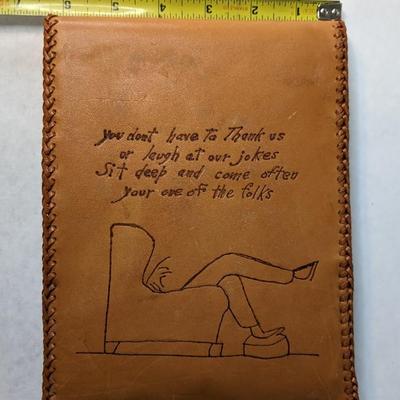 7 6 5 4 3 2 1
you dont have to Thank us
or laugh at our jokes
Sit deep and come often
your one of the folks